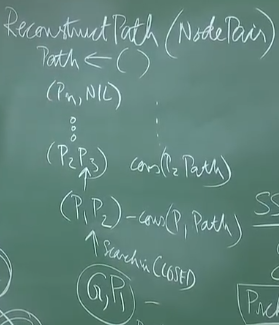 ReconstructPath (NodePair)
Path ← ( )
(Pn, NIL)
(P2 P3) cons(P2 Path)
(P1, P2) – cons(P1 Path)
Search in CLOSED
G, P1 –
SS